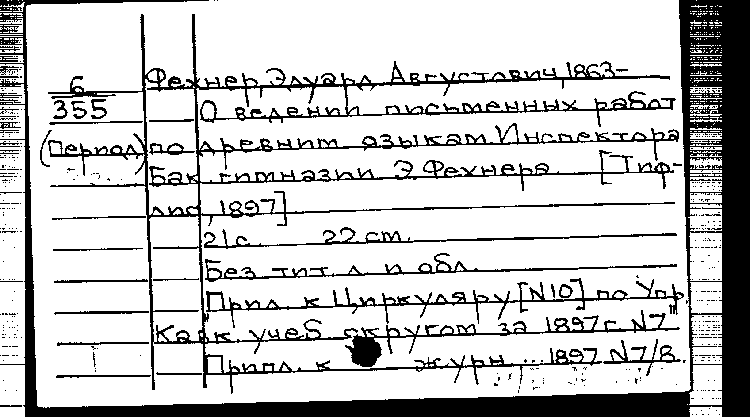 6 Фехнер, Эдуард Августович, 1863-
355 О ведении письменных работ
(Период) по древним языкам Инспектора
Бак. гимназии Э. Фехнера [Тиф-
лис, 1897]
21 с. 22 cm.
Без тит. л и обл.
"Прил. к Циркуляру [N10] по Упр.
Кавк. учеб округом за 1897 г. N7"
Прил. к журн ... 1897 N7/8.